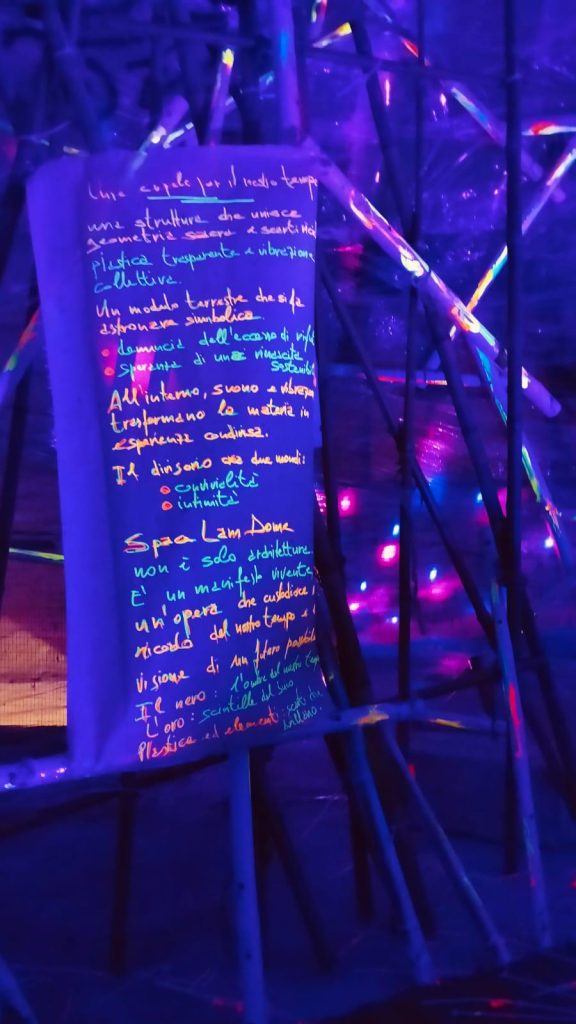 Una cupola per il nostro tempo
una struttura che unisce
geometria sacra e scarti
plastica trasparente e vibrazione
collettiva.
Un modulo terrestre che si fa
astronave simbolica.
denuncia dell'eccesso di
speranza di una rinascita
sostenib
All'interno, suono e vibrazioni
trasformano la materia in
esperienza condivisa.
Il divisorio crea due mondi:
convivialità
intimità
Space Lam Dome
non è solo architettura
E' un manifesto vivente
un'opera che custodisce
ricordo del nostro tempo e
visione di un futuro possibile
Il nero: l'ombra del nostro tempo
L'oro: scintille del
Plastica ed elementi